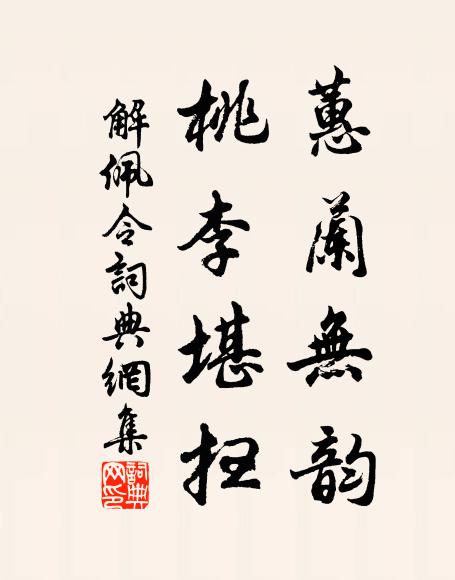 蕙蘭無韵
桃李堪扫
解佩令詞典網集
詞典
网印